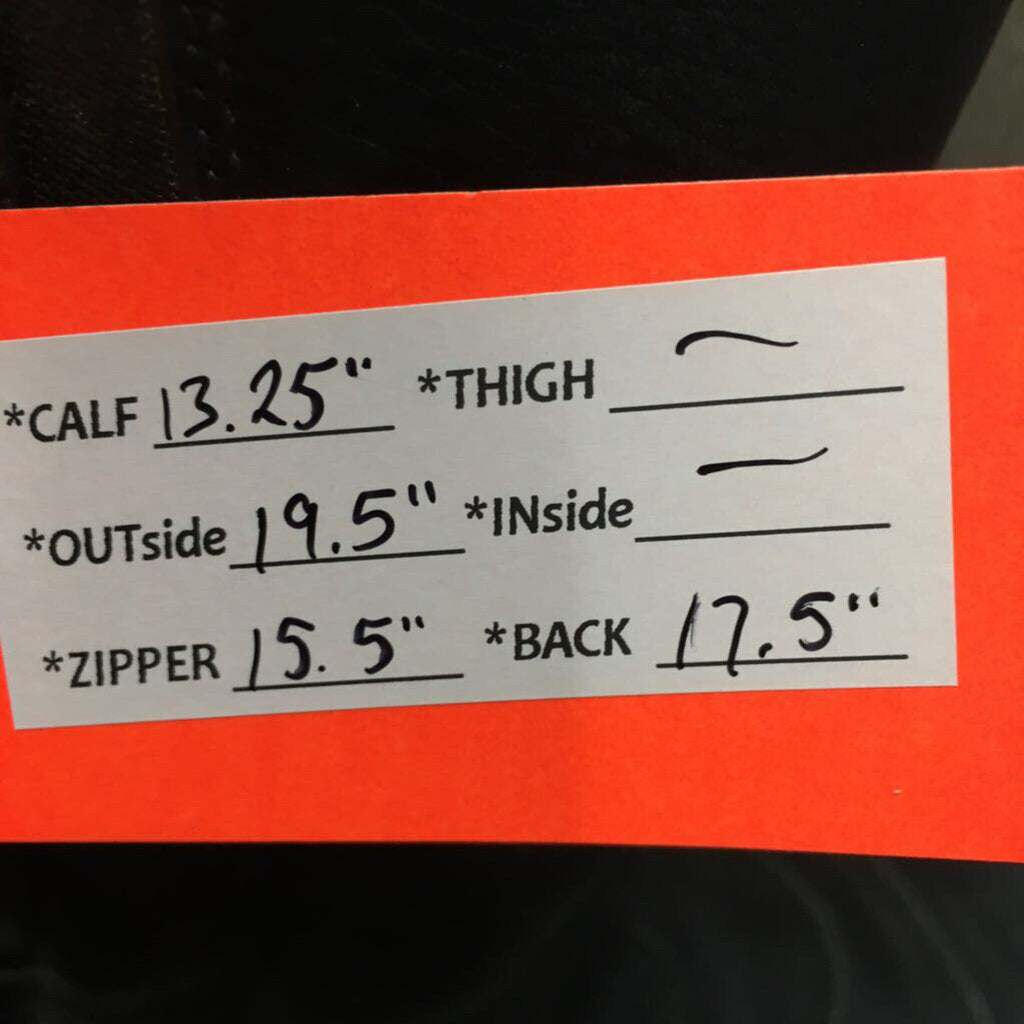 *CALF 13.25" *THIGH —
*OUTside 19.5" *INside —
*ZIPPER 15.5" *BACK 17.5"